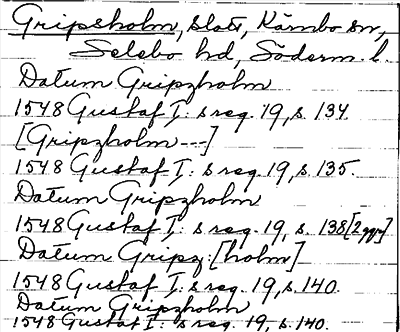 Gripsholm, slott, Kärnbo sn,
Selebo hd, Söderm. l.
Datum Gripzholm
1548 Gustaf I: s reg. 19, s. 134.
[Gripzholm ---]
1548 Gustaf I: s reg. 19, s. 135.
Datum Gripzholm
1548 Gustaf I: s reg. 19, s. 138 [2 ggr]
Datum Gripz: [holm]
1548 Gustaf I: s reg. 19, s. 140.
Datum Gripzholm
1548 Gustaf I: s reg. 19, s. 140.